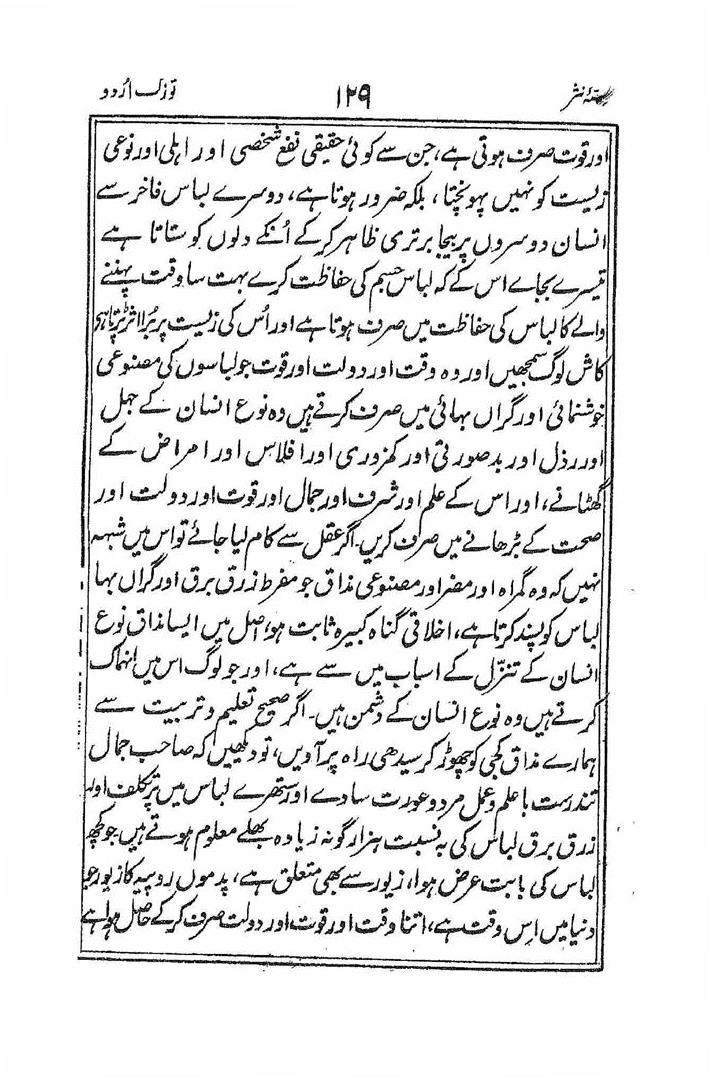 حصۂ نثر ۱۲۹ تزک اُردو
اور قوت صرف ہوتی ہے، جن سے کوئی حقیقی نفع شخصی اور اہلی اور نوعی
زیست کو نہیں پہونچتا، بلکہ ضرور ہوتا ہے، دوسرے لباس فاخر سے
انسان دوسروں پر بیجا برتری ظاہر کرکے اُنکے دلوں کو ستاتا ہے
تیسرے بجاے اس کے کہ لباس جسم کی حفاظت کرے بہت سا وقت پہننے
والے کا لباس کی حفاظت میں صرف ہوتا ہے اور اُس کی زیست پر بُرا اثر پڑتا ہی
کاش لوگ سمجھیں اور وہ وقت اور دولت اور قوت جو لباسوں کی مصنوعی
خوشنمائی اور گراں بہائی میں صرف کرتے ہیں وہ نوع انسان کے جہل
اور رذل اور بدصورتی اور کمزوری اور افلاس اور امراض کے
گھٹانے، اور اس کے علم اور شرف اور جمال اور قوت اور دولت اور
صحت کے بڑھانے میں صرف کریں۔ اگر عقل سے کام لیا جائے تو اس میں شبہہ
نہیں کہ وہ گمراہ اور مضر اور مصنوعی مذاق جو مفرط زرق برق اور گراں بہا
لباس کو پسند کرتا ہے، اخلاقی گناہ کبیرہ ثابت ہو، اصل میں ایسا مذاق نوع
انسان کے تنزّل کے اسباب میں سے ہے، اور جو لوگ اس میں انہماک
کرتے ہیں وہ نوع انسان کے دشمن ہیں۔ اگر صحیح تعلیم و تربیت سے
ہمارے مذاق کجی کو چھوڑ کر سیدھی راہ پر آویں، تو دیکھیں کہ صاحب جمال
تندرست با علم و عمل مرد و عورت سادے اور ستھرے لباس میں پرتکلف اور
زرق برق لباس کی بہ نسبت ہزار گونہ زیادہ بھلے معلوم ہوتے ہیں۔ جو کچھ
لباس کی بابت عرض ہوا، زیور سے بھی متعلق ہے، پدموں روپیہ کا زیور جو
دنیا میں اِس وقت ہے، اتنا وقت اور قوت اور دولت صرف کرکے حاصل ہوا ہے